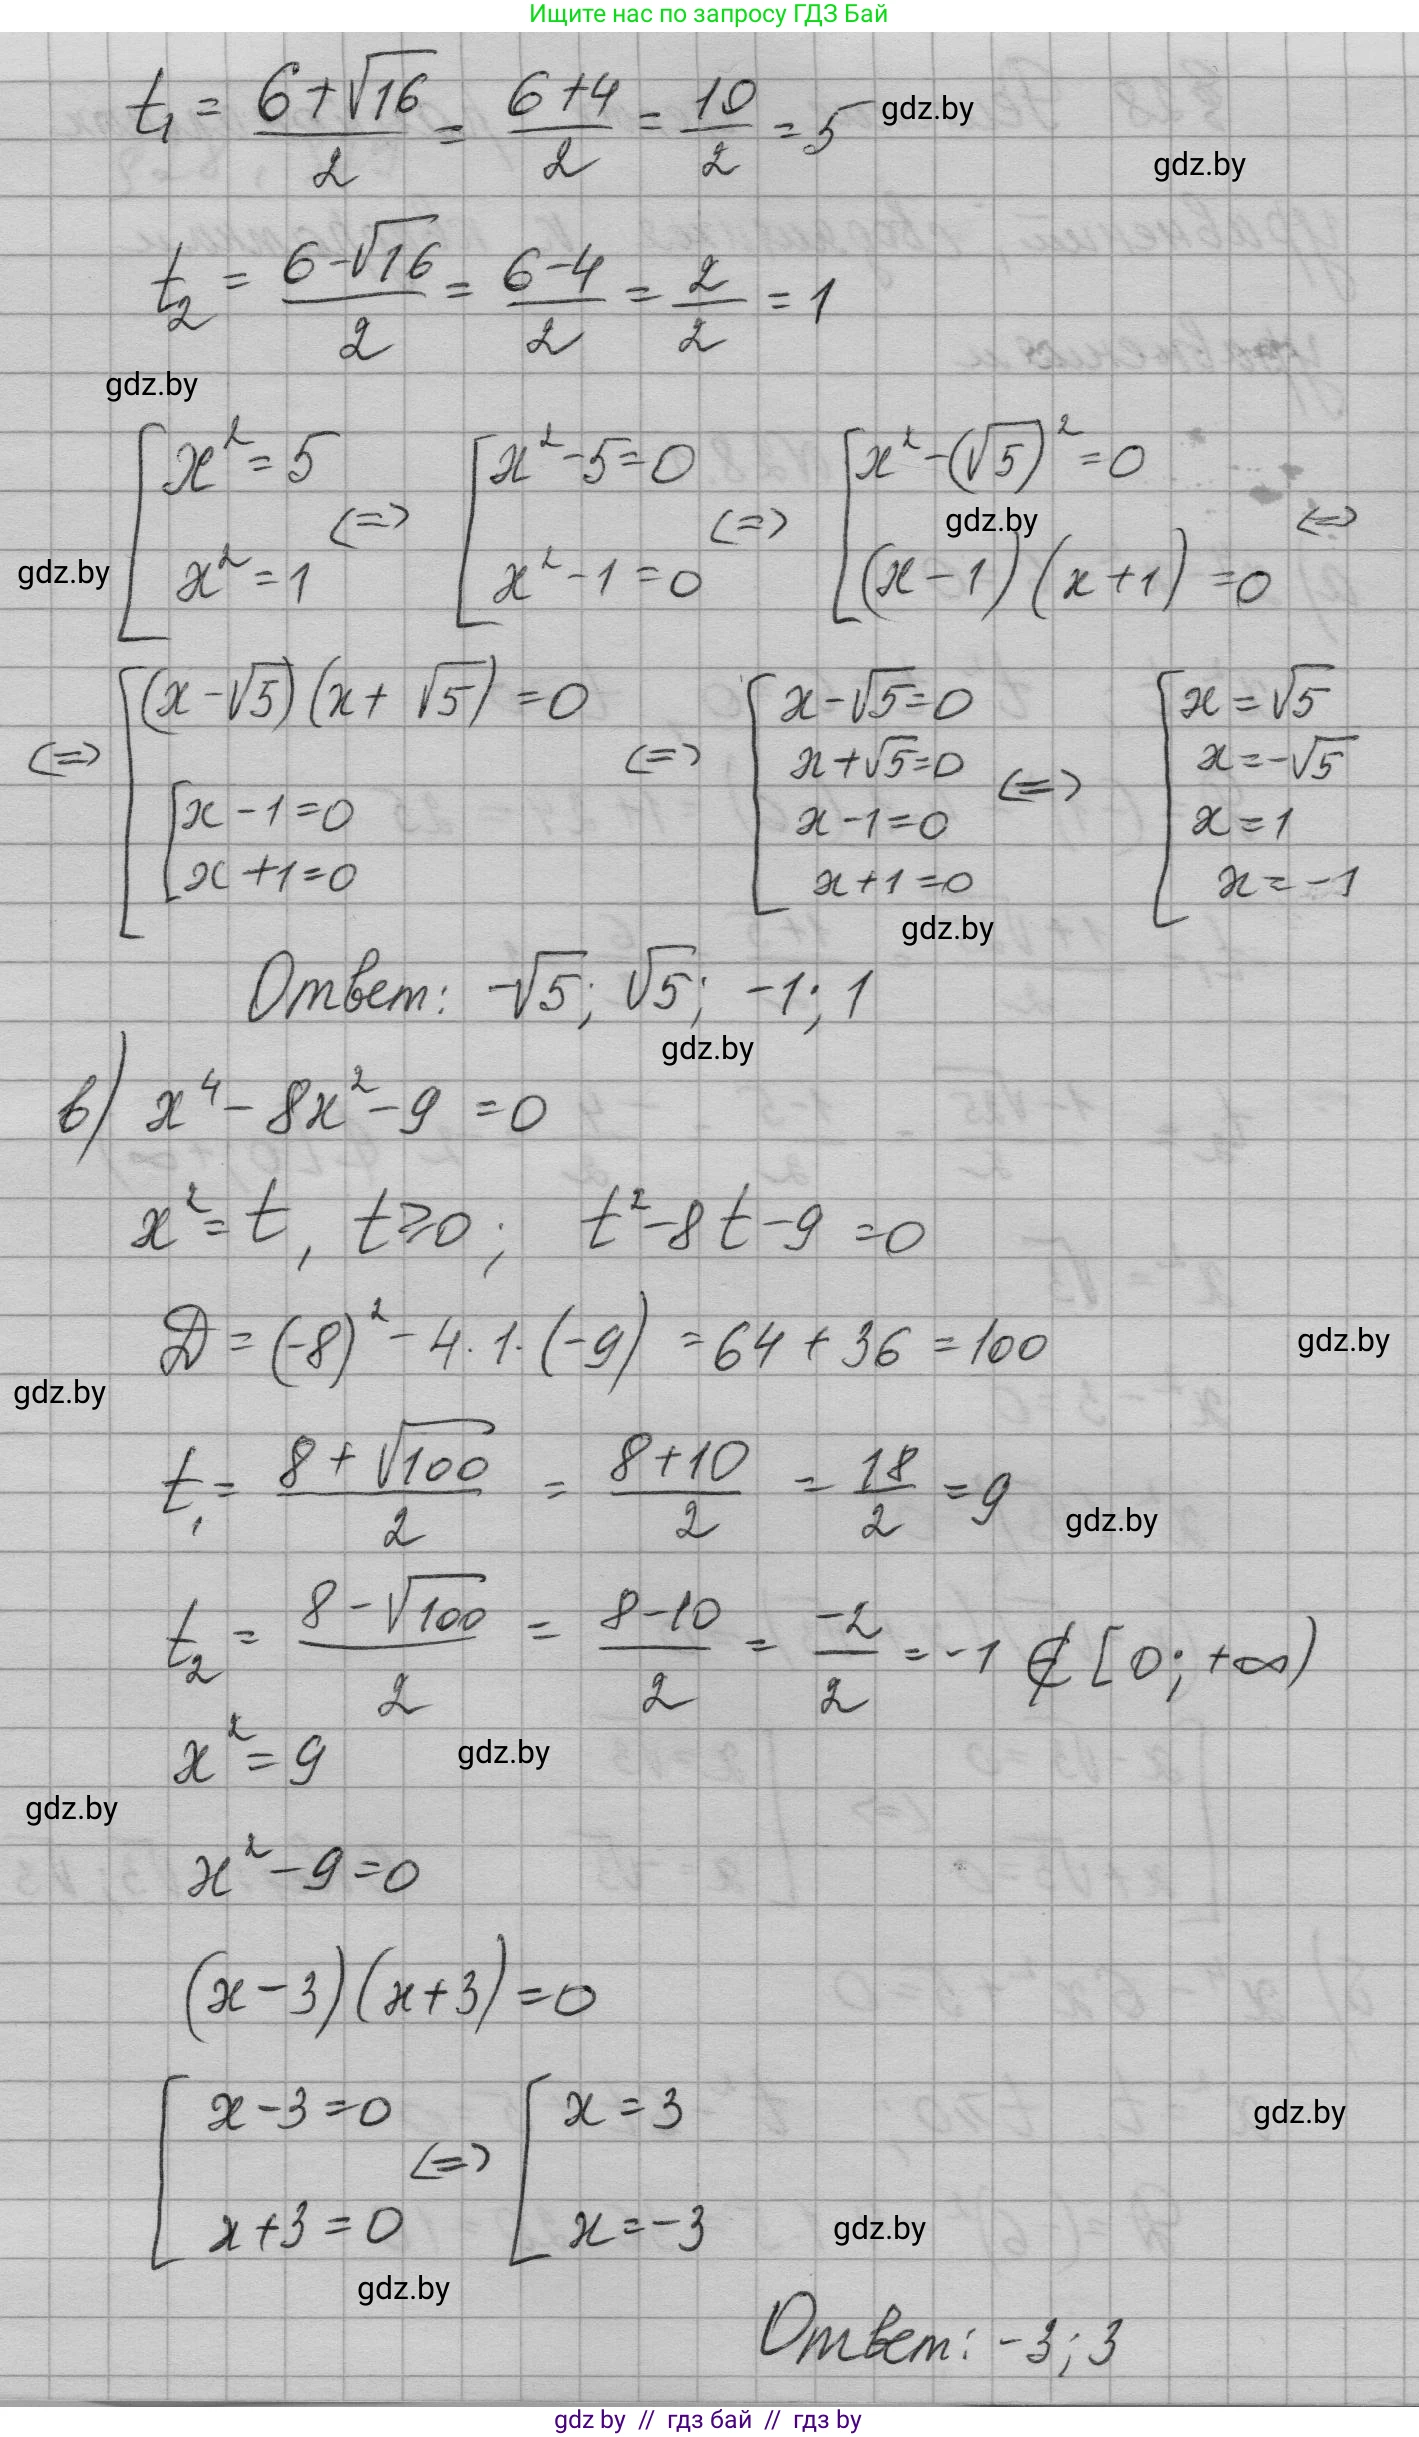 Ищите нас по запросу ГДЗ Бай
t₁ = (6+√16)/2 = (6+4)/2 = 10/2 = 5 gdz.by
gdz.by
t₂ = (6-√16)/2 = (6-4)/2 = 2/2 = 1
gdz.by
[ x² = 5 ; x² = 1 <=> [ x² - 5 = 0 ; x² - 1 = 0 <=> [ x² - (√5)² = 0 ; (x - 1)(x + 1) = 0 <=>
gdz.by
gdz.by
<=> [ (x - √5)(x + √5) = 0 ; [ x - 1 = 0 ; x + 1 = 0 <=> [ x - √5 = 0 ; x + √5 = 0 ; x - 1 = 0 ; x + 1 = 0 <=> [ x = √5 ; x = -√5 ; x = 1 ; x = -1
gdz.by
Ответ: -√5; √5; -1; 1
gdz.by
в) x⁴ - 8x² - 9 = 0
x² = t, t ⩾ 0; t² - 8t - 9 = 0
D = (-8)² - 4·1·(-9) = 64 + 36 = 100 gdz.by
gdz.by
t₁ = (8+√100)/2 = (8+10)/2 = 18/2 = 9
gdz.by
t₂ = (8-√100)/2 = (8-10)/2 = -2/2 = -1 ∉ [0; +∞)
x² = 9 gdz.by
gdz.by
x² - 9 = 0
(x - 3)(x + 3) = 0
[ x - 3 = 0 ; x + 3 = 0 <=> [ x = 3 ; x = -3
gdz.by
gdz.by
gdz.by
Ответ: -3; 3
gdz by // гдз бай // гдз by